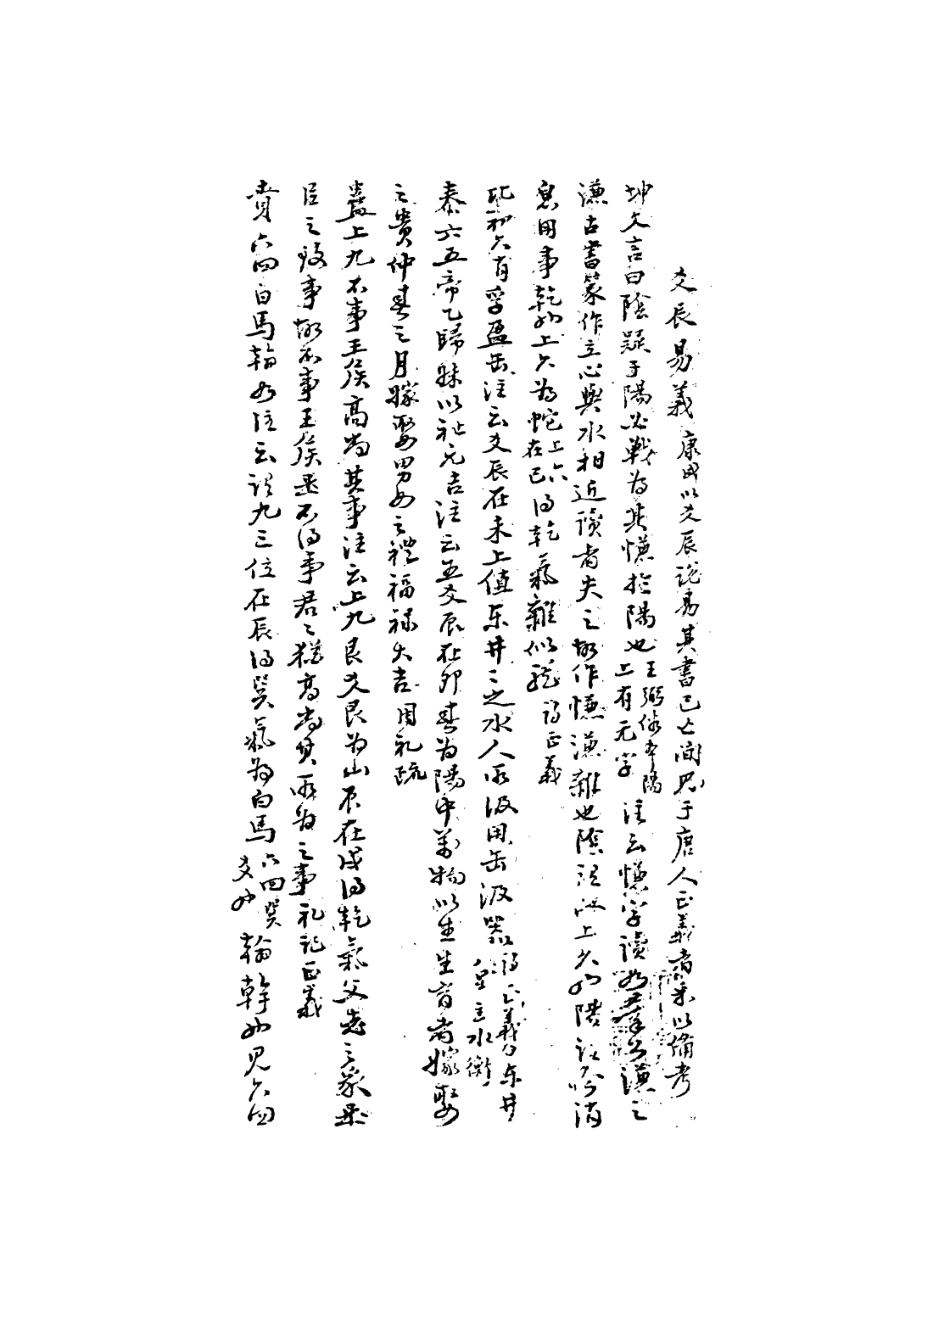 爻辰易義 康成以爻辰說易其書已亡閒見于唐人正義者采以備考
坤文言曰陰疑于陽必戰為其慊於陽也 王弼俗本陽上有无字 注云慊字讀如羣公溓之
溓古書篆作立心與水相近讀者失之故作慊溓雜也陰謂此上六也陽謂今消
息用事乾也上六為蛇 上六在巳 得乾氣雜似龍 詩正義
比初六有孚盈缶注云爻辰在未上值東井井之水人所汲用缶汲器 詩正義 東井主水衡
泰六五帝乙歸妹以祉元吉注云五爻辰在卯春為陽中萬物以生生育者嫁娶
之貴仲春之月嫁娶男女之禮福祿大吉 周礼疏
蠱上九不事王侯高尚其事注云上九艮爻艮為山辰在戌得乾氣父老之象是
臣之致事故不事王侯是不得事君君猶高尚其所為之事 礼記正義
賁六四白馬翰如注云謂九三位在辰得巽氣為白馬 六四巽爻也 翰幹也見六四